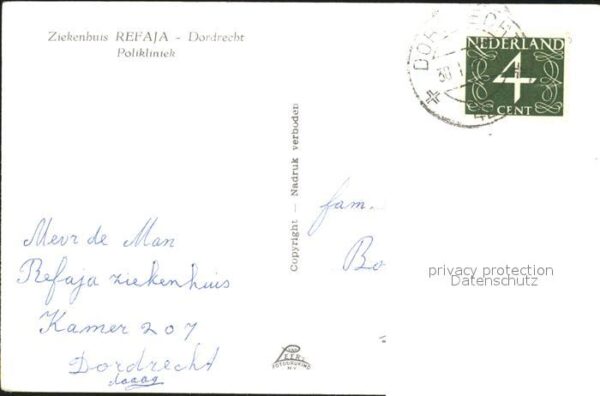 Ziekenhuis REFAJA - Dordrecht
Polikliniek
DORDRECHT
30
NEDERLAND
4
CENT
Copyright — Nadruk verboden
fam.
Bo
Mevr de Man
Refaja ziekenhuis
Kamer 207
Dordrecht
daaag
privacy protection
Datenschutz